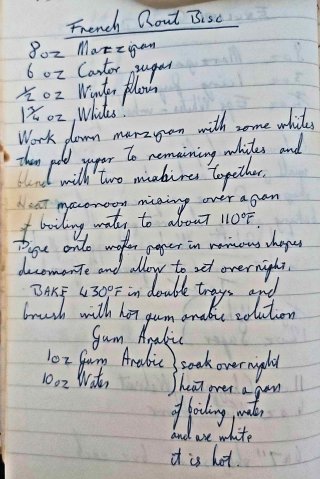 French Rout Bisc
8 oz Marzypan
6 oz Castor sugar
½ oz Winter flour
1¾ oz Whites.
Work down marzypan with some whites
then add sugar to remaining whites and
blend with two mixtures together.
Heat macoroon mixing over a pan
of boiling water to about 110°F.
Pipe onto wafer paper in various shapes
decorate and allow to set overnight.
BAKE 430°F in double trays and
brush with hot gum arabic solution
Gum Arabic
1 oz Gum Arabic } soak overnight
10 oz Water heat over a pan
of boiling water
and use white
it is hot.